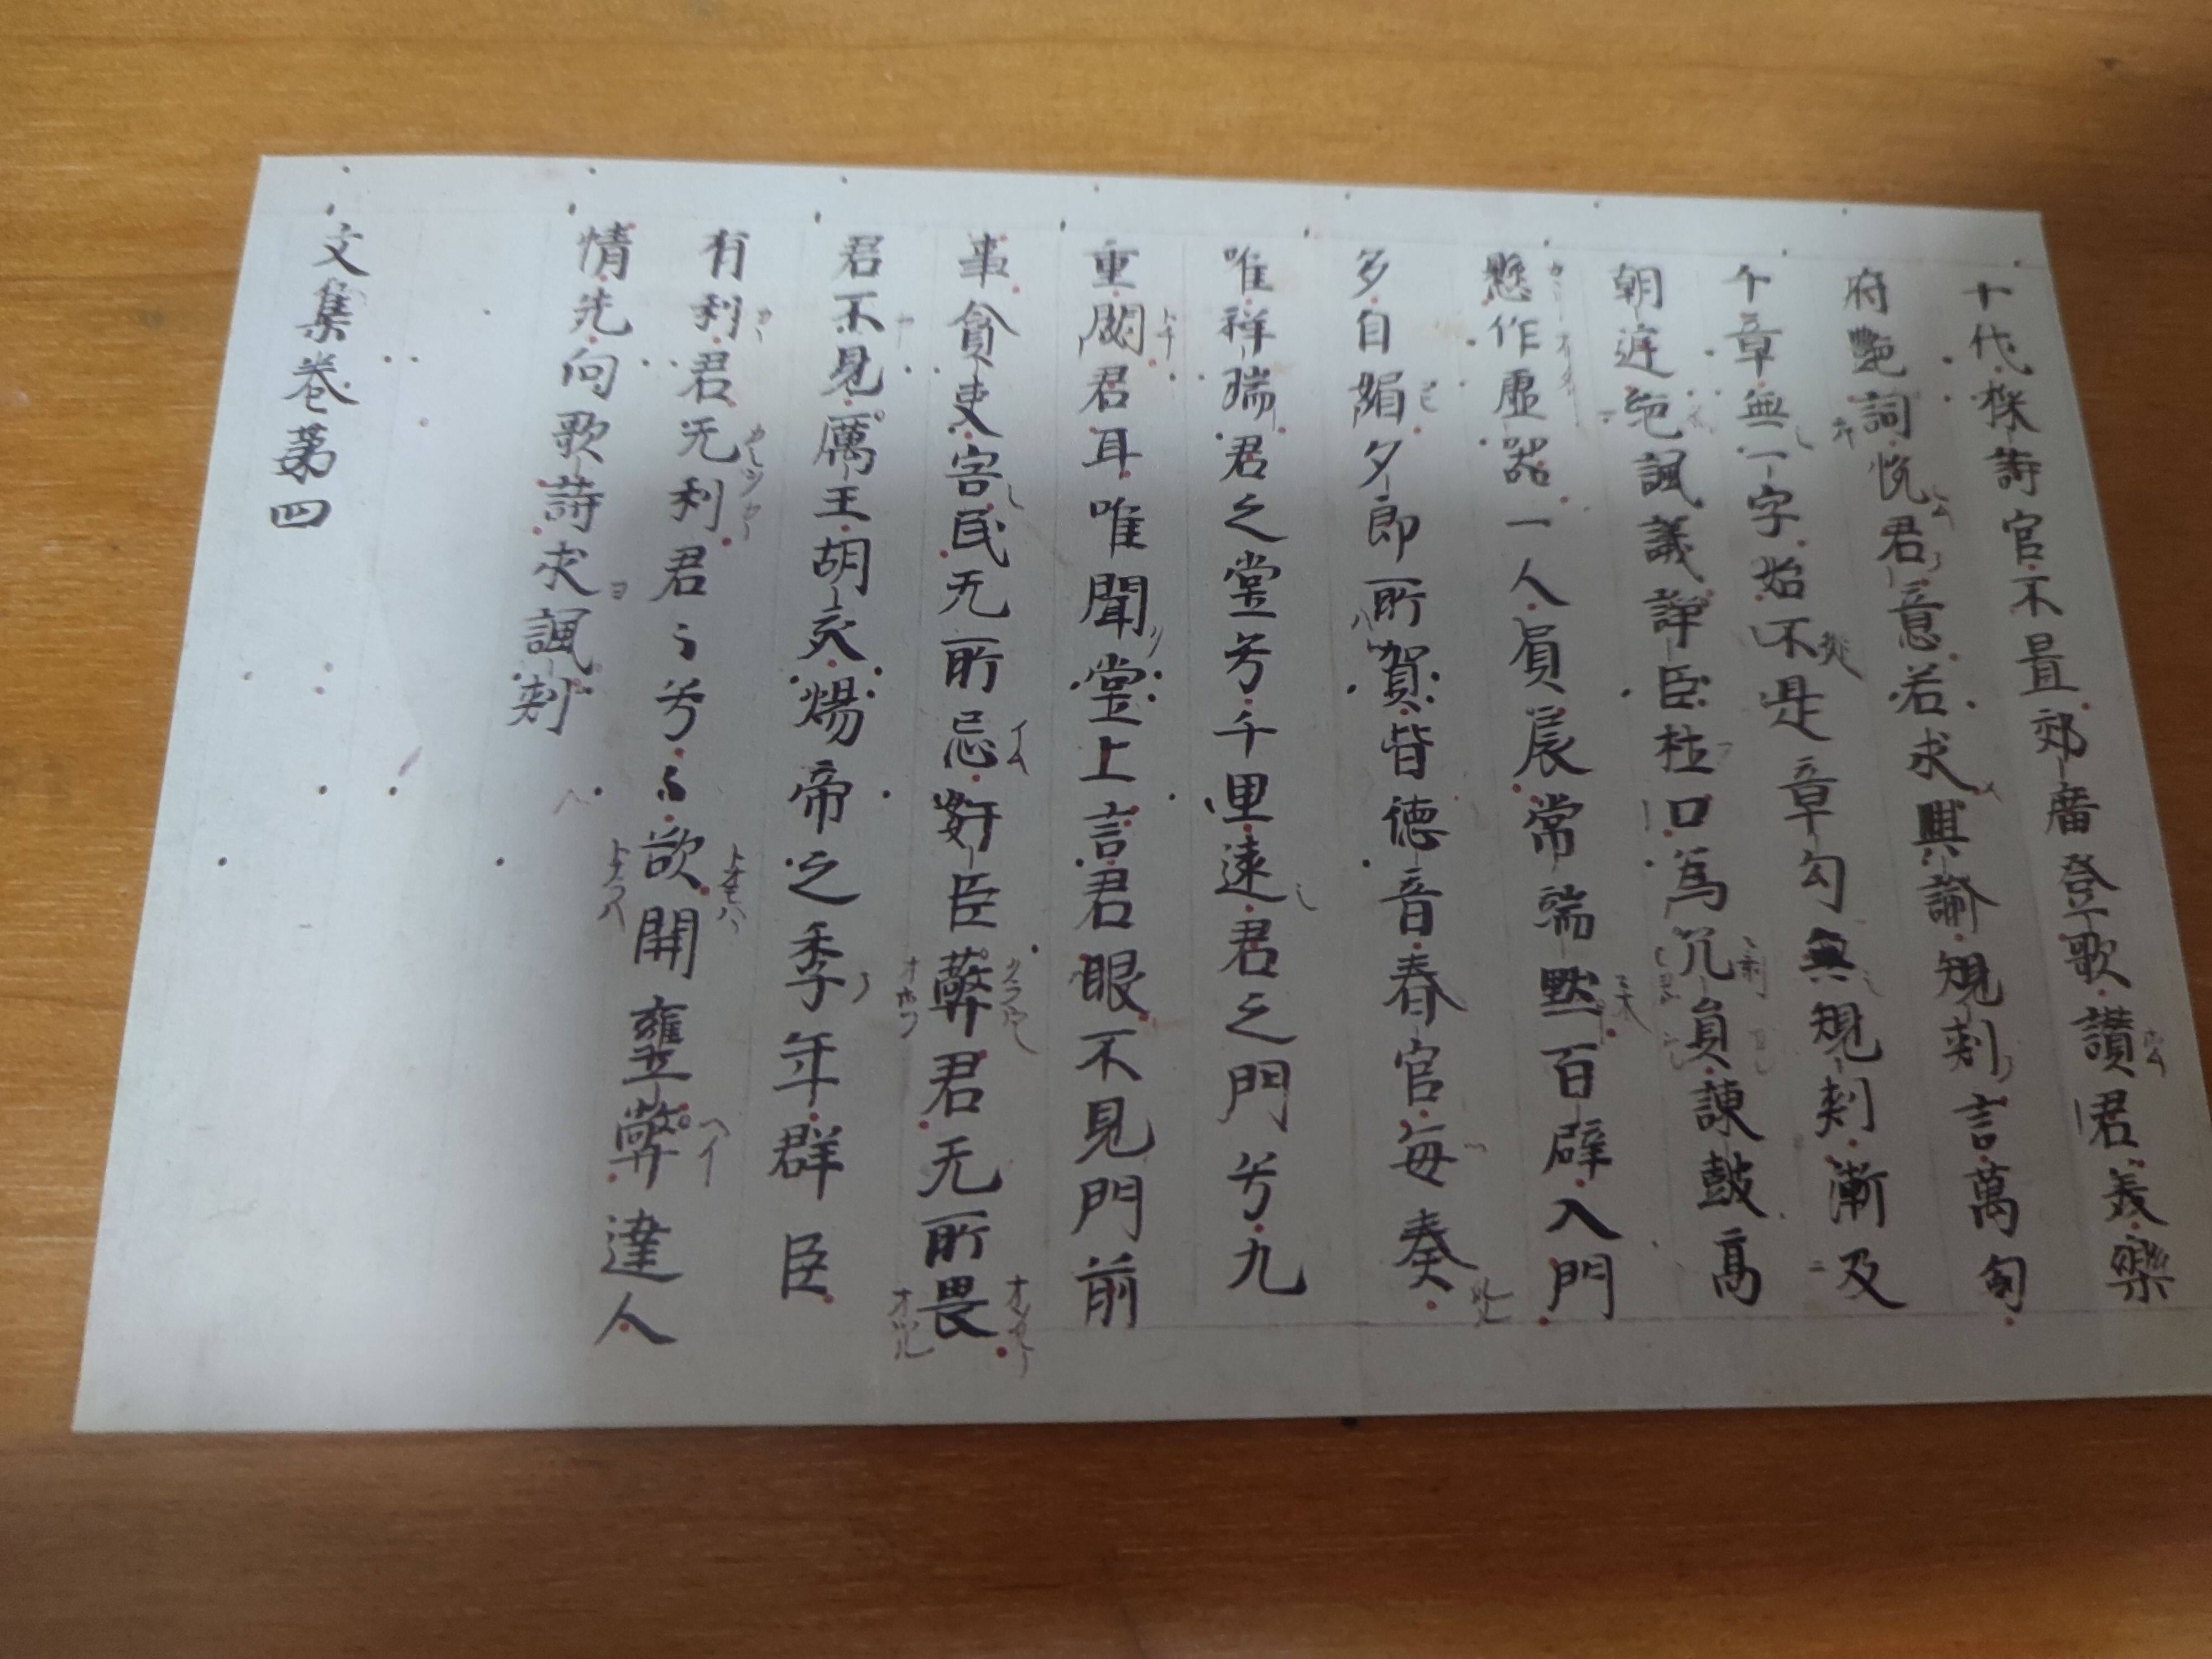 十代採詩官不置郊廟登歌讃君美樂
府艷詞悦君意若求興諭規刾言萬句
千章無一字始不是章勾無規刾漸及
朝遅絶諷議諍臣杜口爲冗員諌鼓高
懸作虚器一人負扆常端黙百辟入門
多自媚夕郎所賀皆徳音春官毎奏
唯祥瑞君之堂兮千里遠君之門兮九
重閟君耳唯聞堂上言君眼不見門前
事貪吏害民无所忌奸臣蔽君无所畏
君不見厲王胡亥煬帝之季年群臣
有利君无利君々兮々欲開壅蔽達人
情先向歌詩求諷刾
文集巻第四